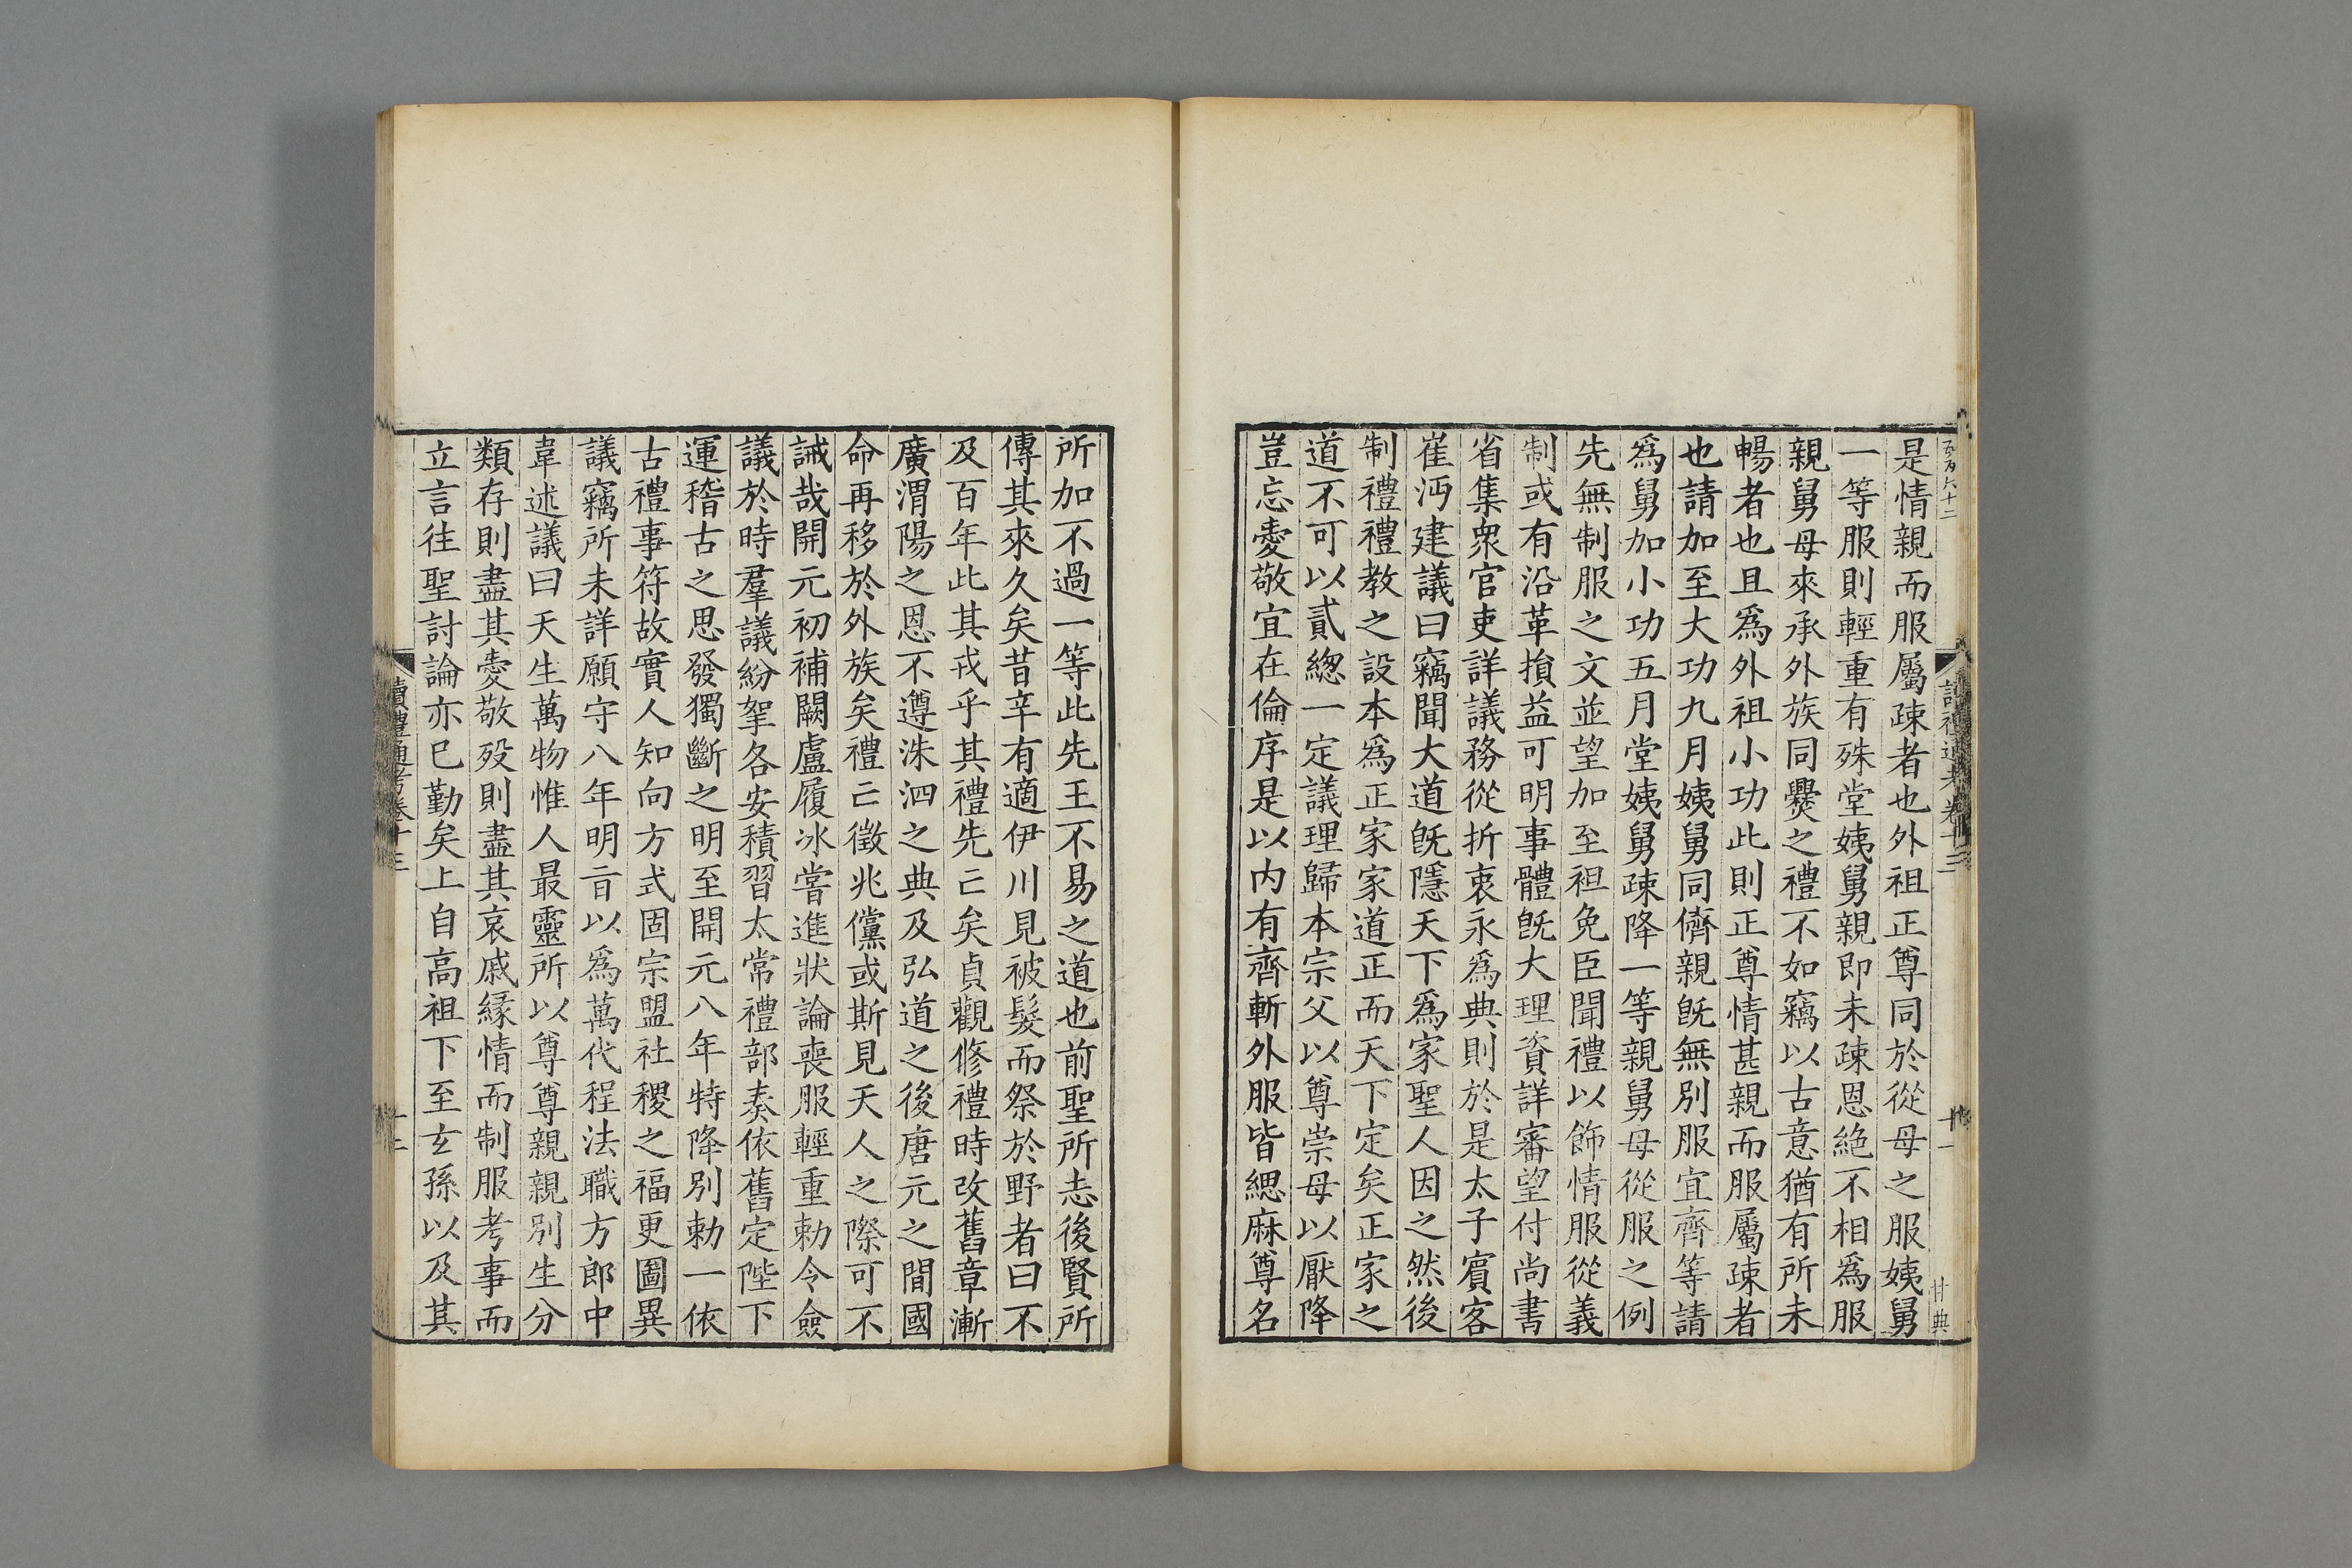 是情親而服屬疎者也外祖正尊同於從母之服姨舅
一等服則輕重有殊堂姨舅親即未疎恩絶不相爲服
親舅母來承外族同爨之禮不如竊以古意猶有所未
暢者也且爲外祖小功此則正尊情甚親而服屬疎者
也請加至大功九月姨舅同儕親旣無別服宜齊等請
爲舅加小功五月堂姨舅疎降一等親舅母從服之例
先無制服之文並望加至袒免臣聞禮以飾情服從義
制或有沿革損益可明事體旣大理資詳審望付尚書
省集衆官吏詳議務從折衷永爲典則於是太子賓客
崔沔建議曰竊聞大道旣隱天下爲家聖人因之然後
制禮禮教之設本爲正家家道正而天下定矣正家之
道不可以貳緫一定議理歸本宗父以尊崇母以厭降
豈忘愛敬宜在倫序是以内有齊斬外服皆緦麻尊名
所加不過一等此先王不易之道也前聖所志後賢所
傳其來久矣昔辛有適伊川見被髮而祭於野者曰不
及百年此其戎乎其禮先亡矣貞觀修禮時改舊章漸
廣渭陽之恩不遵洙泗之典及弘道之後唐元之間國
命再移於外族矣禮亡徵兆儻或斯見天人之際可不
誡哉開元初補闕盧履冰嘗進狀論喪服輕重勅令僉
議於時羣議紛挐各安積習太常禮部奏依舊定陛下
運稽古之思發獨斷之明至開元八年特降別勅一依
古禮事符故實人知向方式固宗盟社稷之福更圖異
議竊所未詳願守八年明旨以爲萬代程法職方郎中
韋述議曰天生萬物惟人最靈所以尊尊親親別生分
類存則盡其愛敬歿則盡其哀戚緣情而制服考事而
立言往聖討論亦已勤矣上自高祖下至玄孫以及其
讀禮通考卷十三
十二